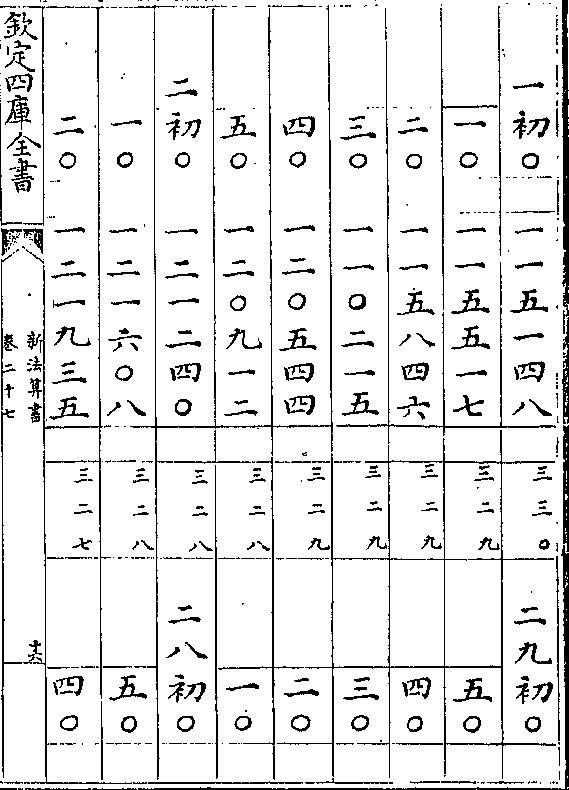 一初〇 一一五一四八 三三〇 二九初〇
一〇 一一五五一七 三二九 五〇
二〇 一一五八四六 三二九 四〇
三〇 一一〇二一五 三二九 三〇
四〇 一二〇五四四 三二九 二〇
五〇 一二〇九一二 三二八 一〇
二初〇 一二一二四〇 三二八 二八初〇
一〇 一二一六〇八 三二八 五〇
二〇 一二一九三五 三二七 四〇
欽定四庫全書
新法算書
卷二十七
十六